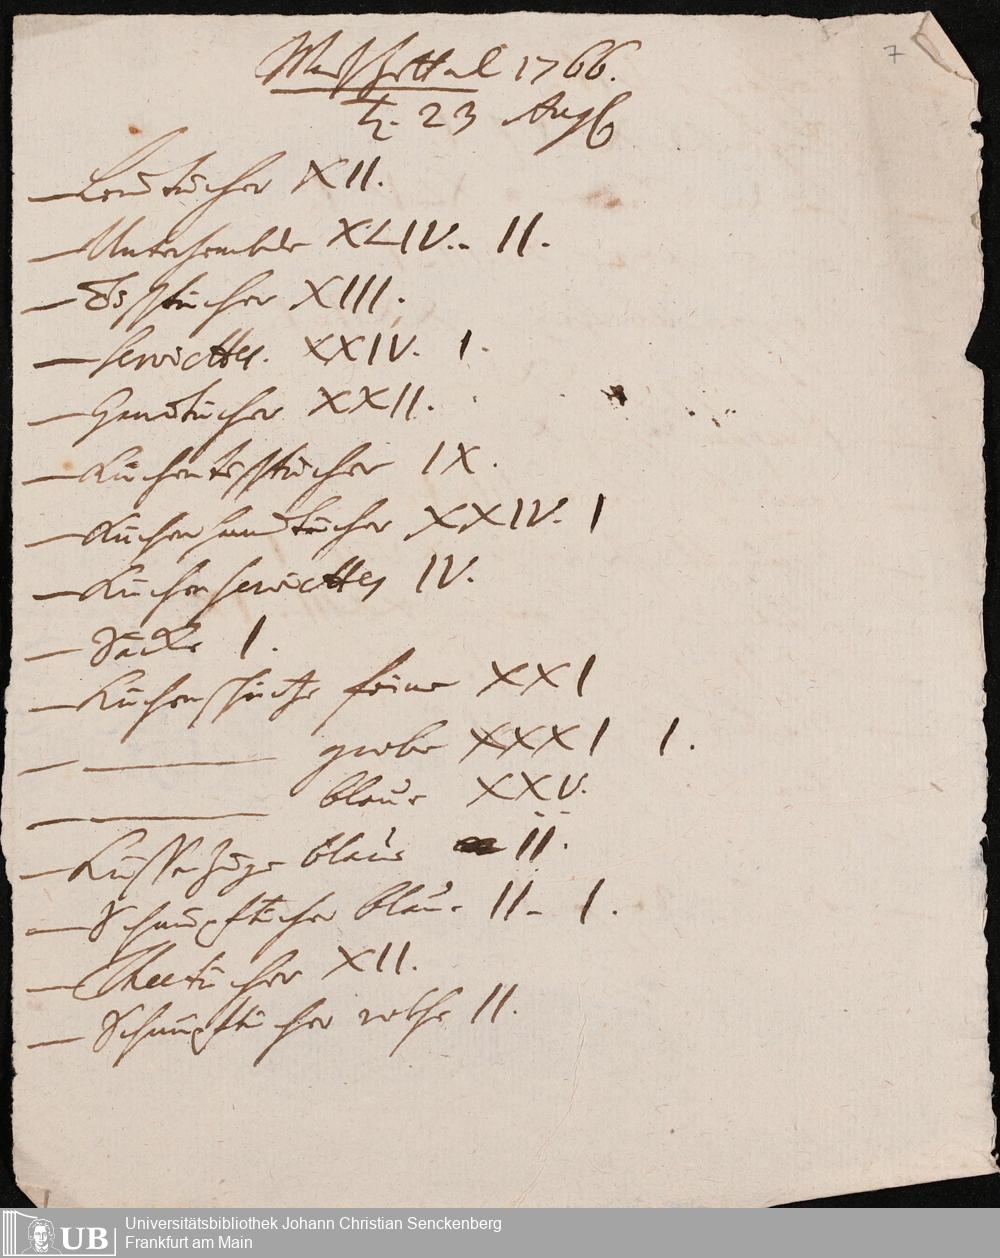 7
Waschzettul 1766.
♄. 23 Aug
— Bendtücher XII.
— Unterhembde XLIV.. II.
— Disstücher XIII.
— Servietten. XXIV. I.
— Handtücher XXII.
— Küchentisstücher IX.
— Küchenhandtücher XXIV. I
— Küchenservietten IV.
— Säcke I.
— Küchenschürtze feine XXI
— ——— grobe XXXI I.
— ——— blaue XXV.
— Küssenzüge blaue II.
— Schnupftücher blaue II. I.
— Theetücher XII.
— Schnupftücher rothe II.
UB Universitätsbibliothek Johann Christian Senckenberg
Frankfurt am Main